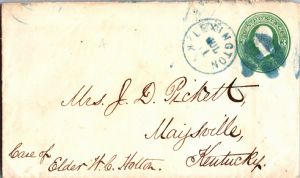 LEXINGTON
JUL
Mrs. J. D. Pickett,
Maysville,
Kentucky.
Case of
Elder W. C. Holton.